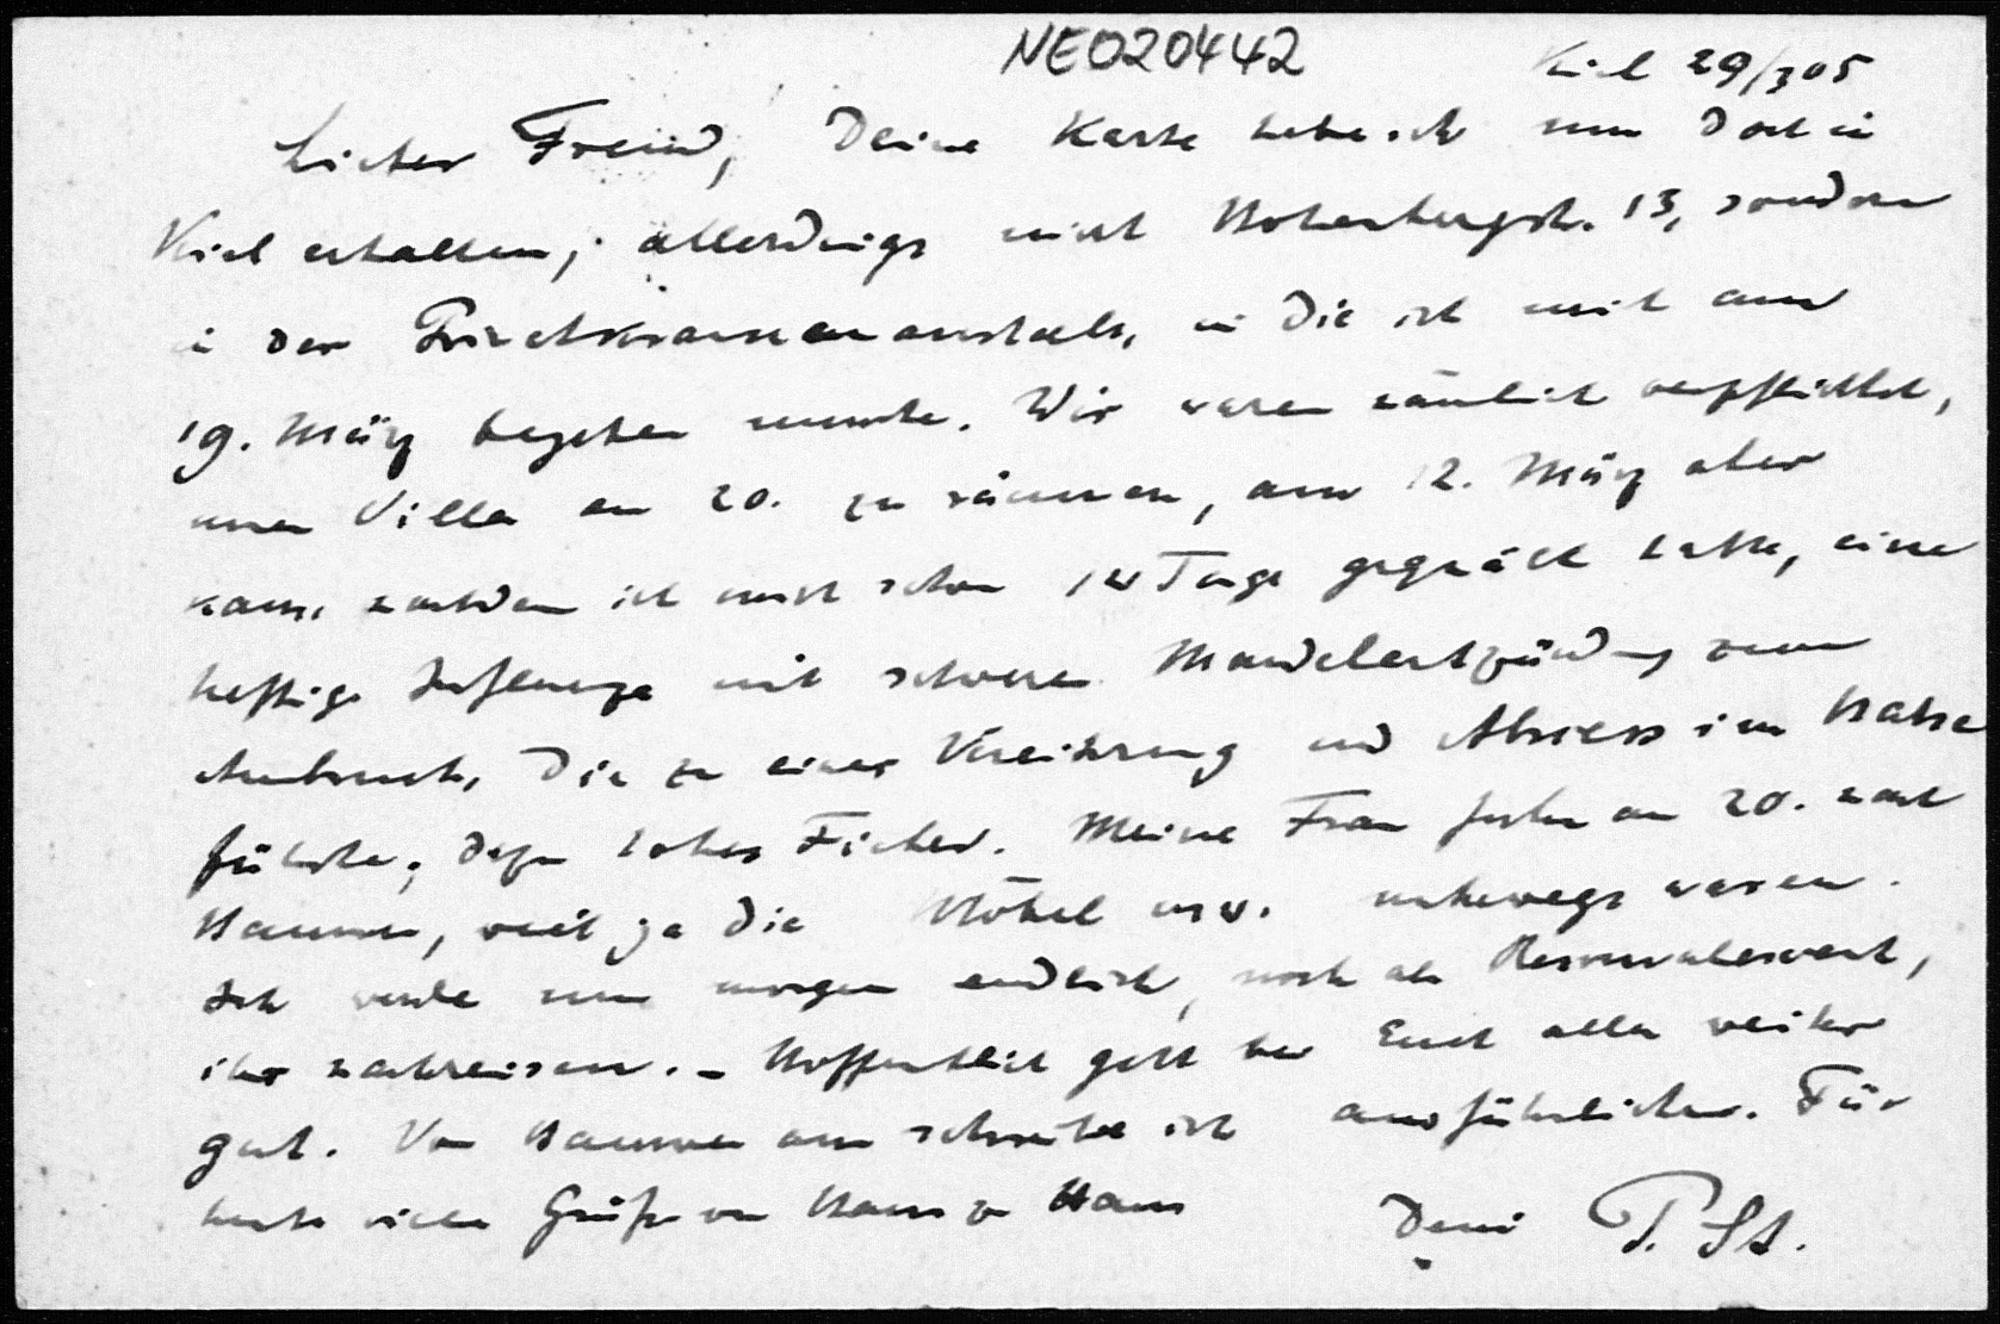 NE020442
Kiel 29/3 05
Lieber Freund, Deine Karte habe ich nun doch in
Kiel erhalten, allerdings nicht Hohenbergstr. 13, sondern
in der Privatkrankenanstalt, in die ich mich am
19. März begeben musste. Wir waren nämlich verpflichtet,
unsere Villa am 20. zu räumen, am 12. März aber
kam, nachdem ich mich schon 14 Tage gequält hatte, eine
heftige Influenza mit schwerer Mandelentzündung zum
Ausbruch, die zu einer Vereiterung und Abscess im Halse
führte, dazu hohes Fieber. Meine Frau fuhr am 20. nach
Hannover, weil ja die Möbel usw. unterwegs waren.
Ich werde nun morgen endlich, noch als Reconvalescent,
ihr nachreisen. – Hoffentlich geht bei Euch alles weiter
gut. Von Hannover aus schreibe ich ausführlicher. Für
heute viele Grüße von Haus zu Haus
Dein P. St.